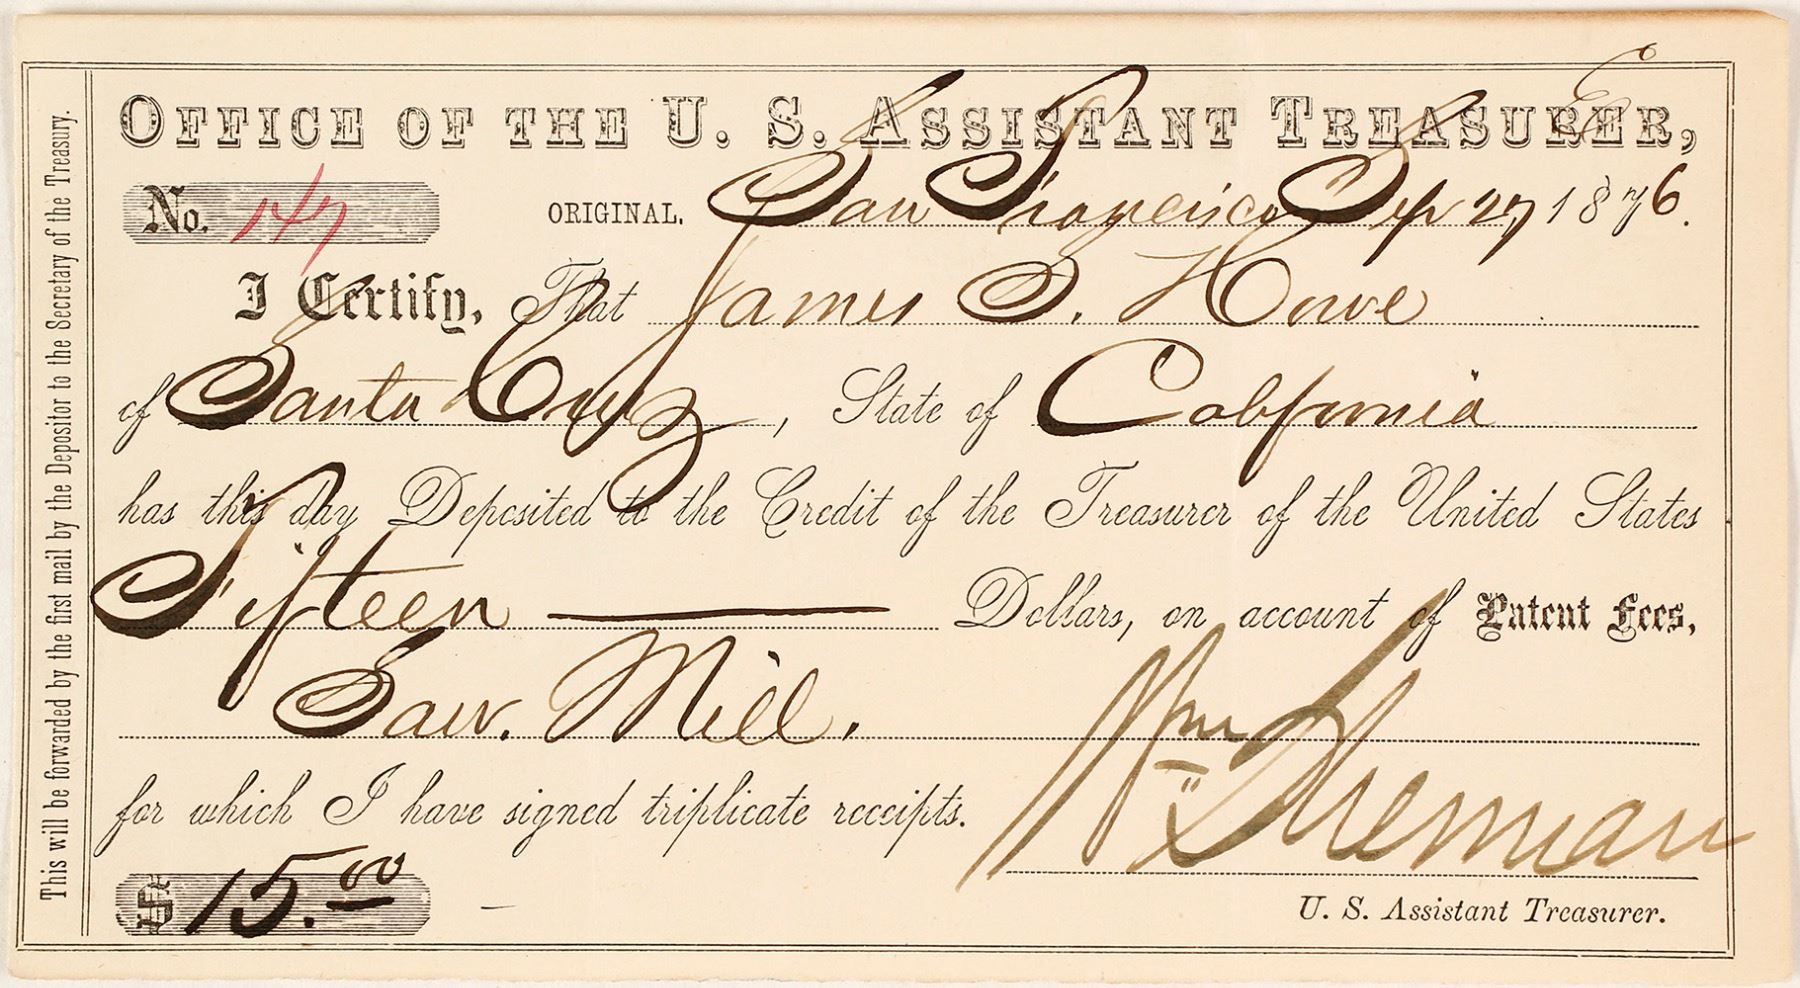 OFFICE OF THE U. S. ASSISTANT TREASURER,
No. 147 ORIGINAL. San Francisco Sep 27 1876.
I Certify, That James S. Howe
of Santa Cruz, State of California
has this day Deposited to the Credit of the Treasurer of the United States
Fifteen Dollars, on account of Patent Fees,
Saw. Mill.
for which I have signed triplicate receipts.
Wm Sherman
$15.00
U. S. Assistant Treasurer.
This will be forwarded by the first mail by the Depositor to the Secretary of the Treasury.